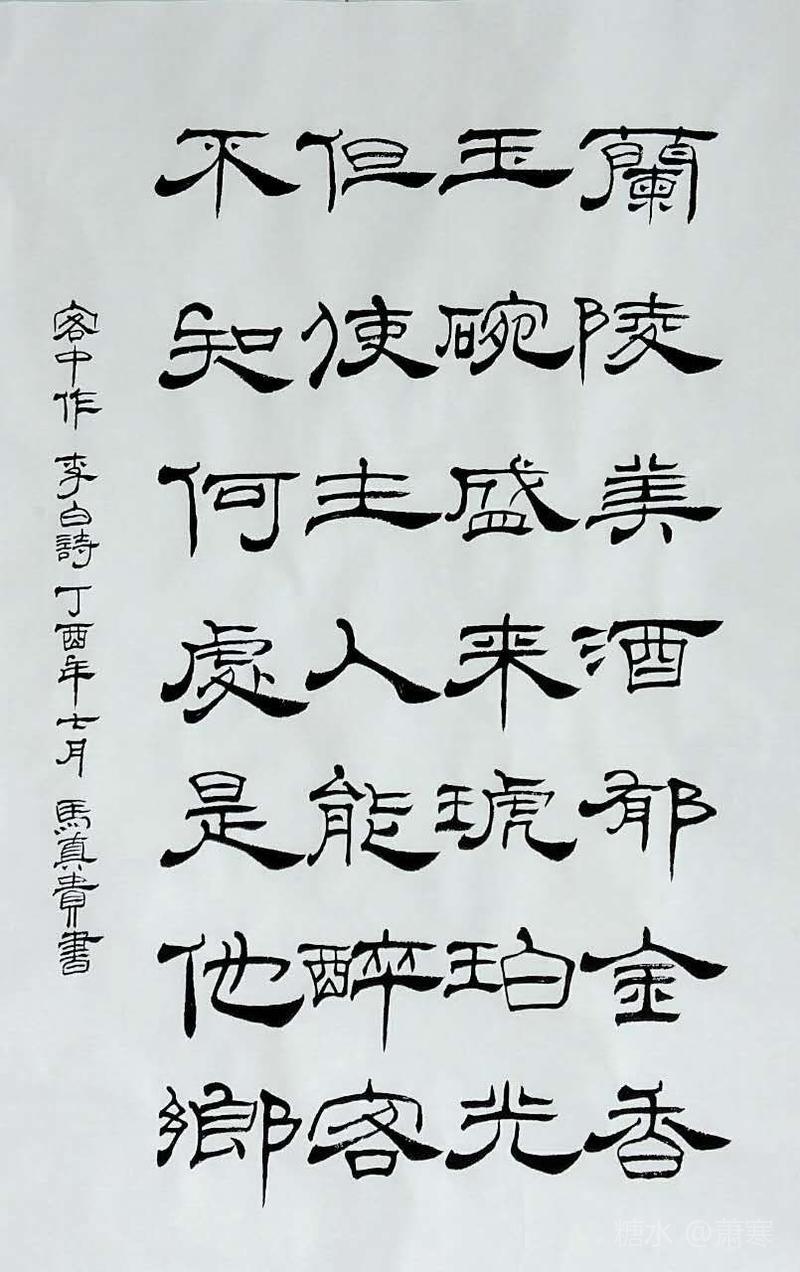 蘭陵美酒郁金香
玉碗盛来琥珀光
但使主人能醉客
不知何處是他鄉
客中作 李白詩 丁酉年七月 馬真貴書
糖水 @萧寒